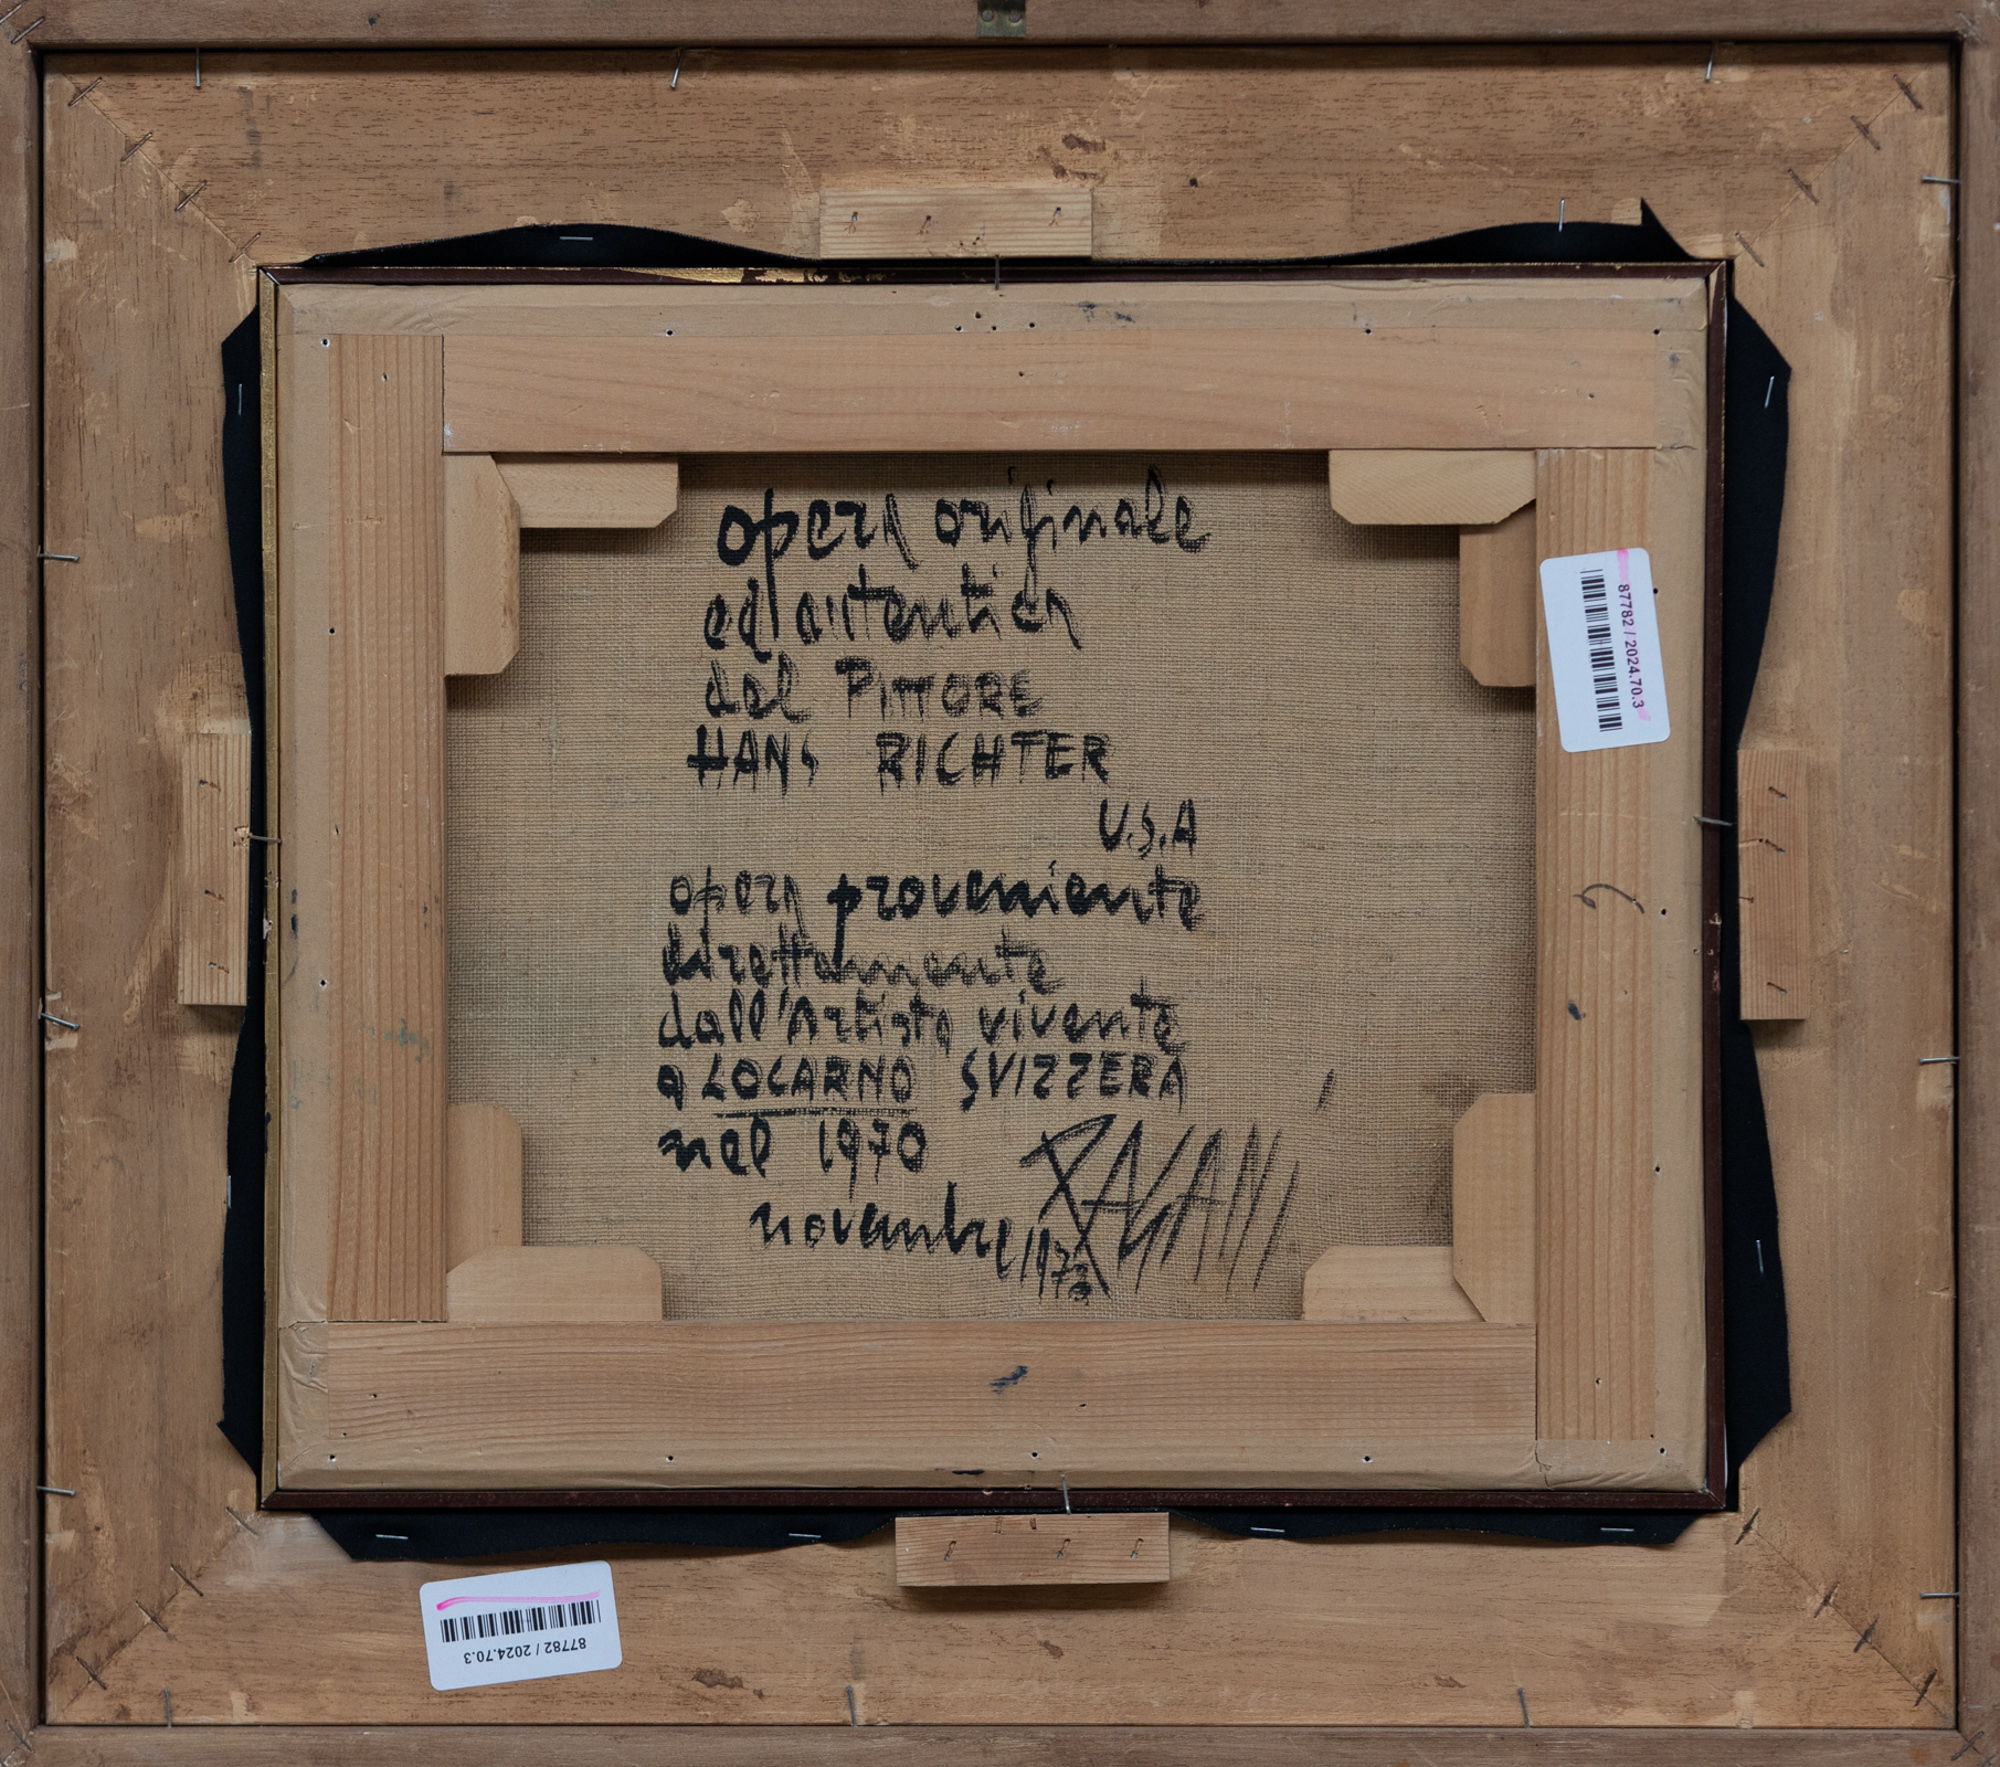 opera originale
ed autentica
del PITTORE
HANS RICHTER
U.S.A
opera proveniente
direttamente
dall'Artista vivente
a LOCARNO SVIZZERA
nel 1970
novembre 1973
PAGANI
87782 / 2024.70.3
87782 / 2024.70.3